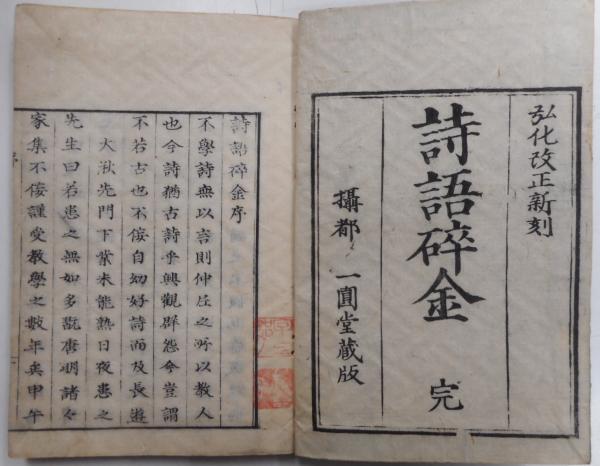 弘化改正新刻
詩語碎金 完
攝都 一圓堂藏版
詩語碎金序
不學詩無以言則仲尼之所以教人
也今詩猶古詩乎興觀群怨今豈謂
不若古也不佞自幼好詩而及長遊
大湫先門下業未能熟日夜患之
先生曰若患之無如多翫唐明諸名
家集不佞謹受教學之數年矣甲午